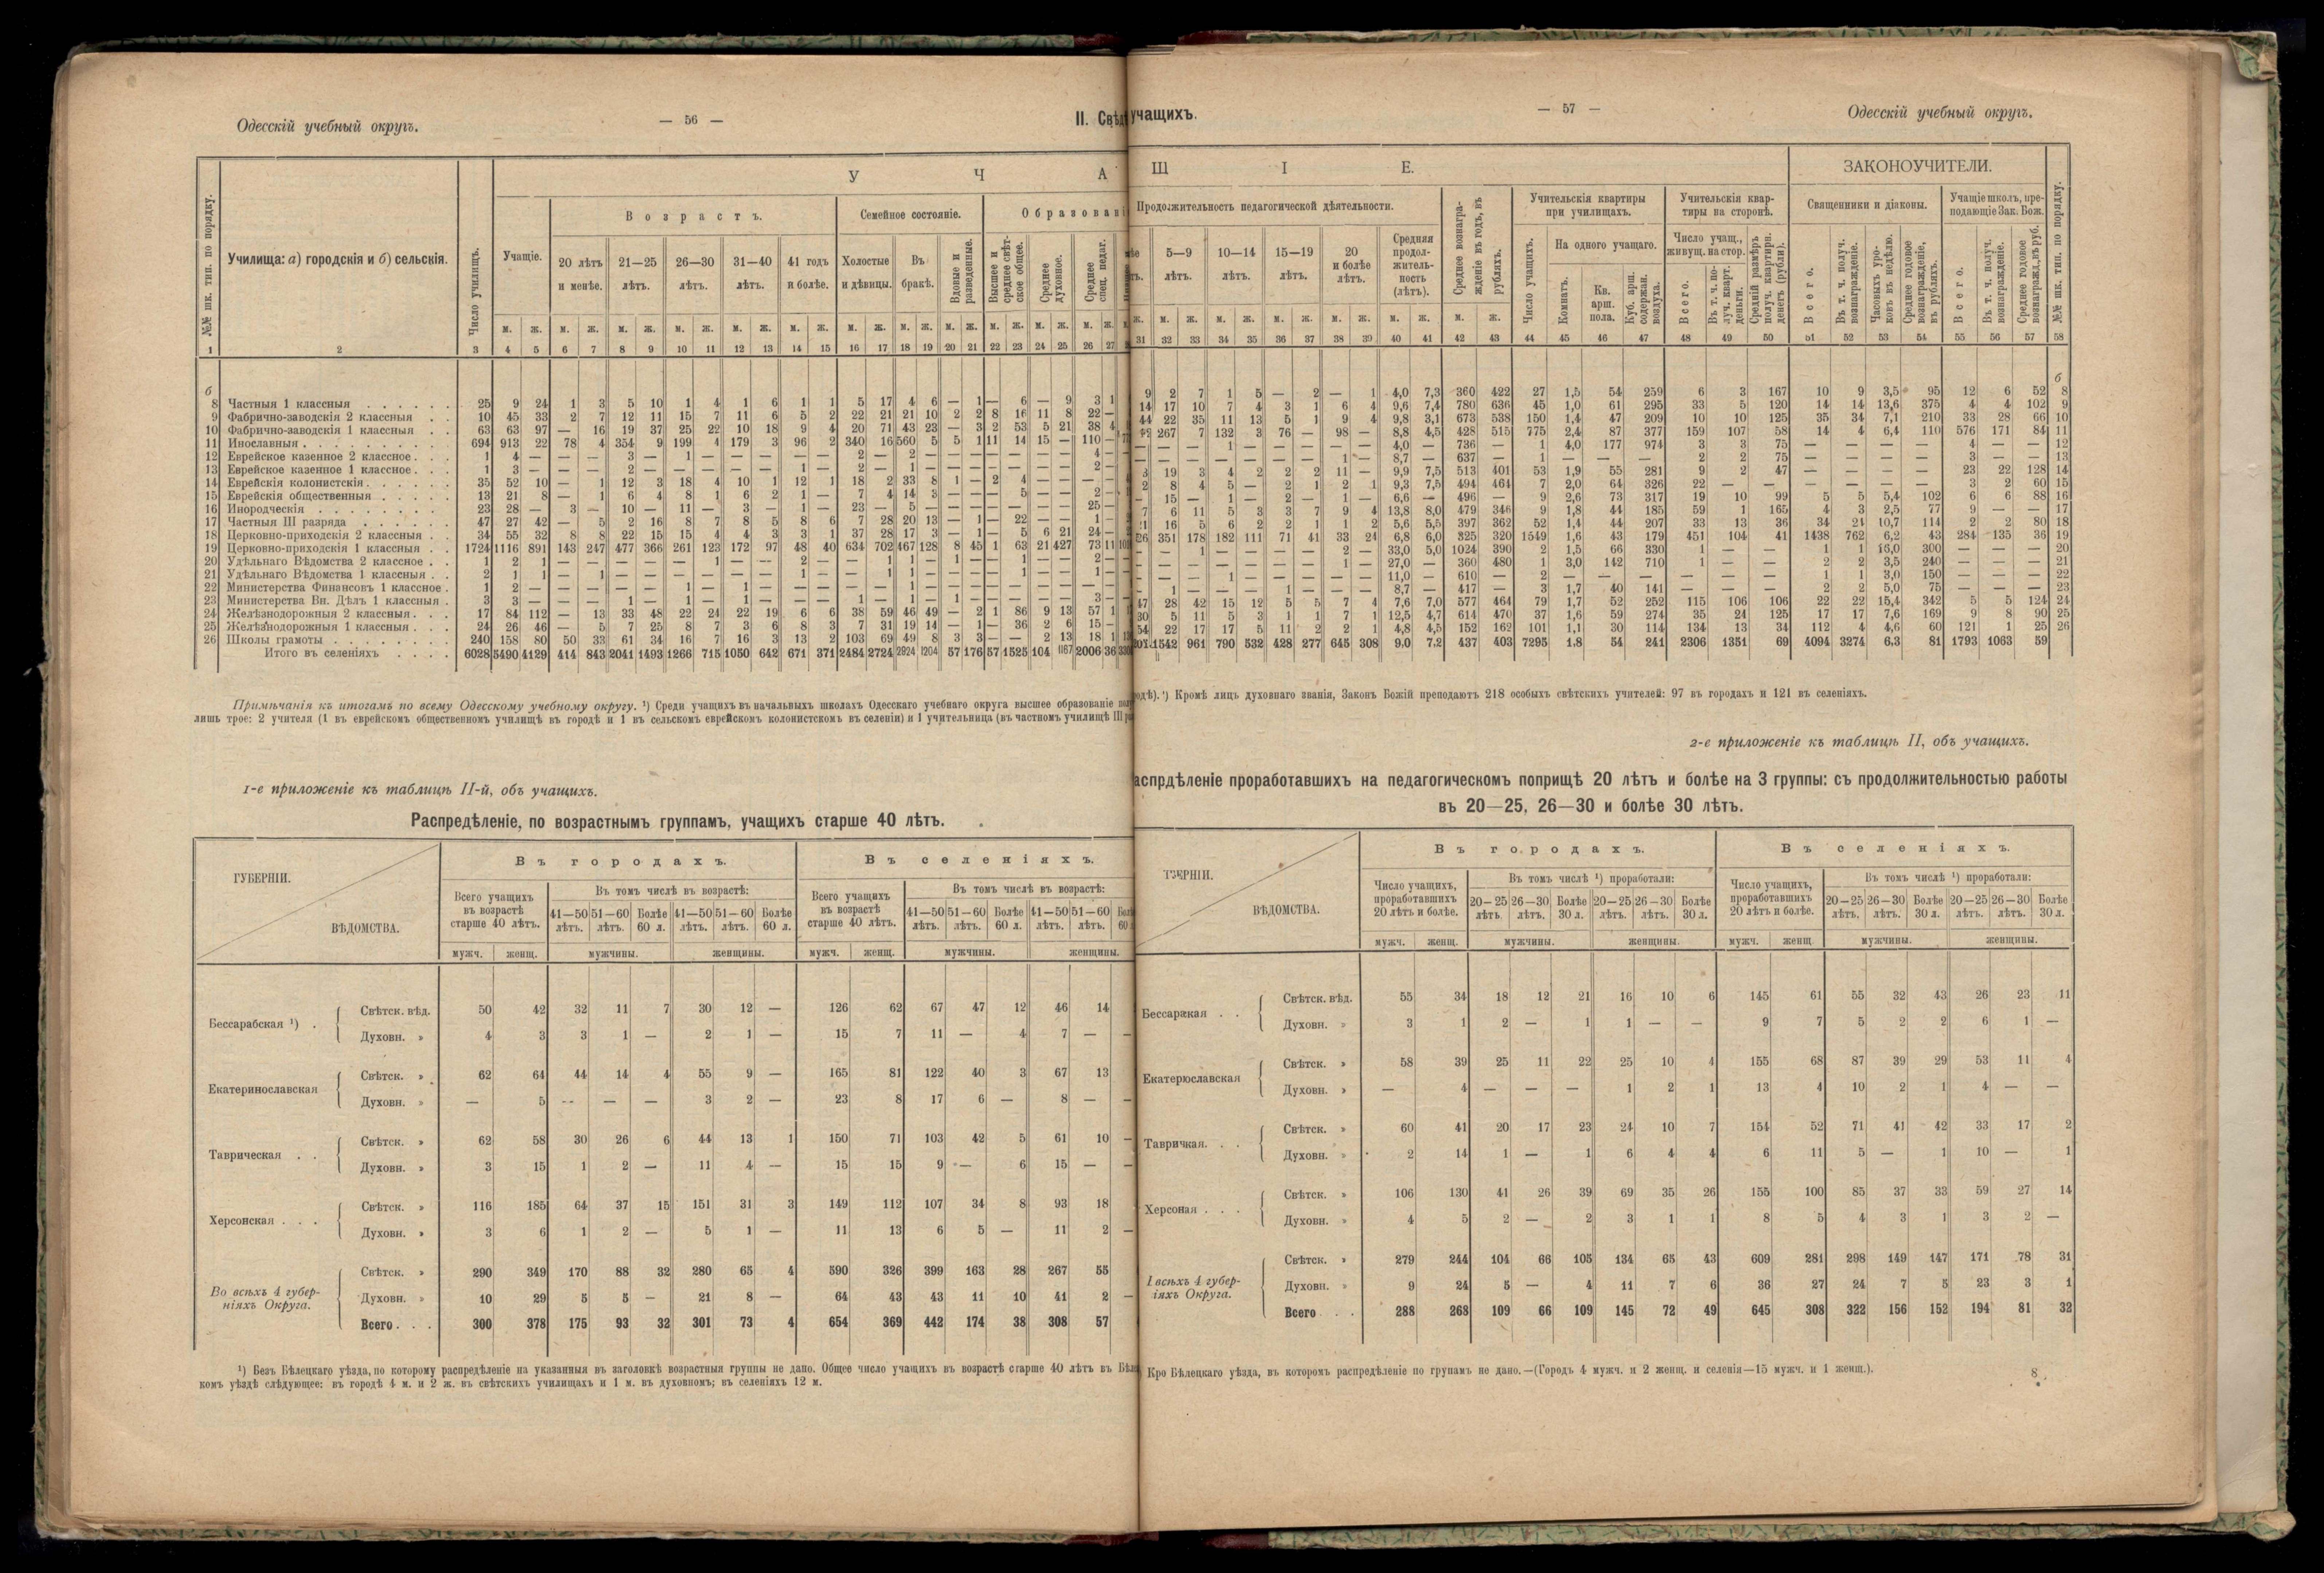 Одесскій учебный округъ.
— 56 —
II. Свѣд
учащихъ.
— 57 —
Одесскій учебный округъ.
У Ч А
Щ І Е.
ЗАКОНОУЧИТЕЛИ.
№№ шк. тип. по порядку.
Училища: а) городскія и б) сельскія.
Число училищъ.
Учащіе.
Возрастъ.
20 лѣтъ и менѣе.
21—25 лѣтъ.
26—30 лѣтъ.
31—40 лѣтъ.
41 годъ и болѣе.
Семейное состояніе.
Холостые и дѣвицы.
Въ бракѣ.
Вдовые и разведенные.
Образовані
Высшее и среднее свѣтское общее.
Среднее духовное.
Среднее спец. педаг.
Продолжительность педагогической дѣятельности.
5—9 лѣтъ.
10—14 лѣтъ.
15—19 лѣтъ.
20 и болѣе лѣтъ.
Средняя продолжительность (лѣтъ).
Среднее вознагражденіе въ годъ, въ рубляхъ.
Учительскія квартиры при училищахъ.
Число учащихъ.
На одного учащаго.
Комнатъ.
Кв. арш. пола.
Куб. арш. содержан. воздуха.
Учительскія квартиры на сторонѣ.
Число учащ., живущ. на стор.
Всего.
Въ т. ч. получ. кварт. деньги.
Средній размѣръ получ. квартирн. денегъ (рубли).
Священники и діаконы.
Всего.
Въ т. ч. получ. вознагражденіе.
Часовыхъ уроковъ въ недѣлю.
Среднее годовое вознагражденіе, въ рубляхъ.
Учащіе школъ, преподающіе Зак. Бож.
Всего.
Въ т. ч. получ. вознагражденіе.
Среднее годовое вознагражд., въ руб.
№№ шк. тип. по порядку.
1 2 3 4 5 6 7 8 9 10 11 12 13 14 15 16 17 18 19 20 21 22 23 24 25 26 27
31 32 33 34 35 36 37 38 39 40 41 42 43 44 45 46 47 48 49 50 51 52 53 54 55 56 57 58
б
8 Частныя 1 классныя 25 9 24 1 3 5 10 1 4 1 6 1 1 5 17 4 6 — 1 — 6 — 9 3 1
9 Фабрично-заводскія 2 классныя 10 45 33 2 7 12 11 15 7 11 6 5 2 22 21 21 10 2 2 8 16 11 8 22 —
10 Фабрично-заводскія 1 классныя 63 63 97 — 16 19 37 25 22 10 18 9 4 20 71 43 23 — 3 2 53 5 21 38 4
11 Инославныя 694 913 22 78 4 354 9 199 4 179 3 96 2 340 16 560 5 5 1 11 14 15 — 110 —
12 Еврейское казенное 2 классное 1 4 — — — 3 — 1 — — — — — 2 — 2 — — — — — — — 4 —
13 Еврейское казенное 1 классное 1 3 — — — 2 — — — — — 1 — 2 — 1 — — — — — — — 2 —
14 Еврейскія колонистскія 35 52 10 — 1 12 3 18 4 10 1 12 1 18 2 33 8 1 — 2 4 — — — —
15 Еврейскія общественныя 13 21 8 — 1 6 4 8 1 6 2 1 — 7 4 14 3 — — — 5 — — 2 —
16 Инородческія 23 28 — 3 — 10 — 11 — 3 — 1 — 23 — 5 — — — — — — — 25 —
17 Частныя III разряда 47 27 42 — 5 2 16 8 7 8 5 8 6 7 28 20 13 — 1 — 22 — — 1 —
18 Церковно-приходскія 2 классныя 34 55 32 8 8 22 15 15 4 4 3 3 1 37 28 17 3 — 1 — 5 6 21 24 —
19 Церковно-приходскія 1 классныя 1724 1116 891 143 247 477 366 261 123 172 97 48 40 634 702 467 128 8 45 1 63 21 427 73 11
20 Удѣльнаго Вѣдомства 2 классное 1 2 1 — — — — — 1 — — 2 — — 1 1 — 1 — — 1 — — 2 —
21 Удѣльнаго Вѣдомства 1 классныя 2 1 1 — 1 — — — — — — 1 — — 1 1 — — — — 1 — — 1 —
22 Министерства Финансовъ 1 классное 1 2 — — — — — 1 — 1 — — — 1 — 1 — — — — — — — — —
23 Министерства Вн. Дѣлъ 1 классныя 3 3 — — — 1 — 1 — 1 — — — 1 — 1 — 1 — — — — — 3 —
24 Желѣзнодорожныя 2 классныя 17 84 112 — 13 33 48 22 24 22 19 6 6 38 59 46 49 — 2 1 86 9 13 57 1
25 Желѣзнодорожныя 1 классныя 24 26 46 — 5 7 25 8 7 3 6 8 3 7 31 19 14 — 1 — 36 2 6 15 —
26 Школы грамоты 240 158 80 50 33 61 34 16 7 16 3 13 2 103 69 49 8 3 3 — — 2 13 18 1
Итого въ селеніяхъ 6028 5490 4129 414 843 2041 1493 1266 715 1050 642 671 371 2484 2724 2924 1204 57 176 57 1525 104 1167 2006 36
б
9 2 7 1 5 — 2 — 1 4,0 7,3 360 422 27 1,5 54 259 6 3 167 10 9 3,5 95 12 6 52 8
14 17 10 7 4 3 1 6 4 9,6 7,4 780 636 45 1,0 61 295 33 5 120 14 14 13,6 375 4 4 102 9
44 22 35 11 13 5 1 9 4 9,8 3,1 673 538 150 1,4 47 209 10 10 125 35 34 7,1 210 33 28 66 10
267 7 132 3 76 — 98 — 8,8 4,5 428 515 775 2,4 87 377 159 107 58 14 4 6,4 110 576 171 84 11
— — — 1 — — — — — 4,0 — 736 — 1 4,0 177 974 3 3 75 — — — — 4 — — 12
— — 1 — — — — 1 — 8,7 — 637 — 1 — — — 2 2 75 — — — — 3 — — 13
3 19 3 4 2 2 2 11 — 9,9 7,5 513 401 53 1,9 55 281 9 2 47 — — — — 23 22 128 14
2 8 4 5 — 2 1 2 1 9,3 7,5 494 464 7 2,0 64 326 22 — — — — — — 3 2 60 15
— 15 — 1 — 2 — 1 — 6,6 — 496 — 9 2,6 73 317 19 10 99 5 5 5,4 102 6 6 88 16
7 6 11 5 3 3 7 9 4 13,8 8,0 479 346 9 1,8 44 185 59 1 165 4 3 2,5 77 9 — — 17
16 5 6 2 2 1 1 2 5,6 5,5 397 362 52 1,4 44 207 33 13 36 34 21 10,7 114 2 2 80 18
351 178 182 111 71 41 33 24 6,8 6,0 325 320 1549 1,6 43 179 451 104 41 1438 762 6,2 43 284 135 36 19
— — — — — — — 2 — 33,0 5,0 1024 390 2 1,5 66 330 1 — — 1 1 16,0 300 — — — 20
— — — — — — — 1 — 27,0 — 360 480 1 3,0 142 710 1 — — 2 2 3,5 240 — — — 21
— — — 1 — — — — — 11,0 — 610 — 2 — — — — — — 1 1 3,0 150 — — — 22
— 1 — — — 1 — — — 8,7 — 417 — 3 1,7 40 141 — — — 2 2 5,0 75 — — — 23
47 28 42 15 12 5 5 7 4 7,6 7,0 577 464 79 1,7 52 252 115 106 106 22 22 15,4 342 5 5 124 24
30 5 11 5 3 1 1 7 1 12,5 4,7 614 470 37 1,6 59 274 35 24 125 17 17 7,6 169 9 8 90 25
54 22 17 17 5 11 2 2 1 4,8 4,5 152 162 101 1,1 30 114 134 13 34 112 4 4,6 60 121 1 25 26
1542 961 790 532 428 277 645 308 9,0 7,2 437 403 7295 1,8 54 241 2306 1351 69 4094 3274 6,3 81 1793 1063 59
Примѣчанія къ итогамъ по всему Одесскому учебному округу. ¹) Среди учащихъ въ начальныхъ школахъ Одесскаго учебнаго округа высшее образованіе
лишь трое: 2 учителя (1 въ еврейскомъ общественномъ училищѣ въ городѣ и 1 въ сельскомъ еврейскомъ колонистскомъ въ селеніи) и 1 учительница (въ частномъ училищѣ III
одѣ). ¹) Кромѣ лицъ духовнаго званія, Законъ Божій преподаютъ 218 особыхъ свѣтскихъ учителей: 97 въ городахъ и 121 въ селеніяхъ.
1-е приложеніе къ таблицѣ II-й, объ учащихъ.
Распредѣленіе, по возрастнымъ группамъ, учащихъ старше 40 лѣтъ.
ГУБЕРНІИ.
ВѢДОМСТВА.
Въ городахъ.
Въ селеніяхъ.
Всего учащихъ въ возрастѣ старше 40 лѣтъ.
Въ томъ числѣ въ возрастѣ:
41—50 лѣтъ. 51—60 лѣтъ. Болѣе 60 л. 41—50 лѣтъ. 51—60 лѣтъ. Болѣе 60 л.
Всего учащихъ въ возрастѣ старше 40 лѣтъ.
Въ томъ числѣ въ возрастѣ:
41—50 лѣтъ. 51—60 лѣтъ. Болѣе 60 л. 41—50 лѣтъ. 51—60 лѣтъ.
мужч. женщ. мужчины. женщины. мужч. женщ. мужчины. женщины.
Бессарабская ¹) .
Свѣтск. вѣд. 50 42 32 11 7 30 12 — 126 62 67 47 12 46 14
Духовн. » 4 3 3 1 — 2 1 — 15 7 11 — 4 7 —
Екатеринославская
Свѣтск. » 62 64 44 14 4 55 9 — 165 81 122 40 3 67 13
Духовн. » — 5 — — — 3 2 — 23 8 17 6 — 8 —
Таврическая . .
Свѣтск. » 62 58 30 26 6 44 13 1 150 71 103 42 5 61 10 —
Духовн. » 3 15 1 2 — 11 4 — 15 15 9 — 6 15 — —
Херсонская . . .
Свѣтск. » 116 185 64 37 15 151 31 3 149 112 107 34 8 93 18
Духовн. » 3 6 1 2 — 5 1 — 11 13 6 5 — 11 2 —
Во всѣхъ 4 губерніяхъ Округа.
Свѣтск. » 290 349 170 88 32 280 65 4 590 326 399 163 28 267 55
Духовн. » 10 29 5 5 — 21 8 — 64 43 43 11 10 41 2 —
Всего . . . 300 378 175 93 32 301 73 4 654 369 442 174 38 308 57
¹) Безъ Бѣлецкаго уѣзда, по которому распредѣленіе на указанныя въ заголовкѣ возрастныя группы не дано. Общее число учащихъ въ возрастѣ старше 40 лѣтъ въ
комъ уѣздѣ слѣдующее: въ городѣ 4 м. и 2 ж. въ свѣтскихъ училищахъ и 1 м. въ духовномъ; въ селеніяхъ 12 м.
2-е приложеніе къ таблицѣ II, объ учащихъ.
аспрдѣленіе проработавшихъ на педагогическомъ поприщѣ 20 лѣтъ и болѣе на 3 группы: съ продолжительностью работы
въ 20—25, 26—30 и болѣе 30 лѣтъ.
ВѢДОМСТВА.
Въ городахъ.
Въ селеніяхъ.
Число учащихъ, проработавшихъ 20 лѣтъ и болѣе.
Въ томъ числѣ ¹) проработали:
20—25 лѣтъ. 26—30 лѣтъ. Болѣе 30 л. 20—25 лѣтъ. 26—30 лѣтъ. Болѣе 30 л.
Число учащихъ, проработавшихъ 20 лѣтъ и болѣе.
Въ томъ числѣ ¹) проработали:
20—25 лѣтъ. 26—30 лѣтъ. Болѣе 30 л. 20—25 лѣтъ. 26—30 лѣтъ. Болѣе 30 л.
мужч. женщ. мужчины. женщины. мужч. женщ. мужчины. женщины.
Бессаракая . .
Свѣтск. вѣд. 55 34 18 12 21 16 10 6 145 61 55 32 43 26 23 11
Духовн. » 3 1 2 — 1 1 — — 9 7 5 2 2 6 1 —
Екатерюславская
Свѣтск. » 58 39 25 11 22 25 10 4 155 68 87 39 29 53 11 4
Духовн. » — 4 — — — 1 2 1 13 4 10 2 1 4 — —
Тавричкая. . .
Свѣтск. » 60 41 20 17 23 24 10 7 154 52 71 41 42 33 17 2
Духовн. » 2 14 1 — 1 6 4 4 6 11 5 — 1 10 — 1
Херсоная . . .
Свѣтск. » 106 130 41 26 39 69 35 26 155 100 85 37 33 59 27 14
Духовн. » 4 5 2 — 2 3 1 1 8 5 4 3 1 3 2 —
всѣхъ 4 губеріяхъ Округа.
Свѣтск. » 279 244 104 66 105 134 65 43 609 281 298 149 147 171 78 31
Духовн. » 9 24 5 — 4 11 7 6 36 27 24 7 5 23 3 1
Всего . . 288 268 109 66 109 145 72 49 645 308 322 156 152 194 81 32
Кро Бѣлецкаго уѣзда, въ которомъ распредѣленіе по групамъ не дано.—(Городъ 4 мужч. и 2 женщ. и селенія—15 мужч. и 1 женщ.).
8